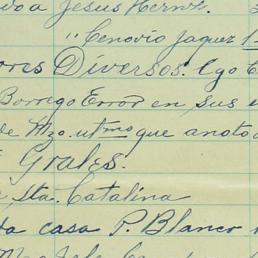 a Jesus Hernz.
" Cenovio Jaquez 1
ores Diversos. Cgo
Borrego Error en sus
de Mzo. utmo que anoto
Grales.
Sta. Catalina
la casa P. Blanco